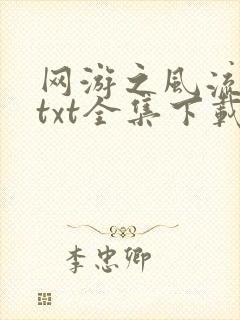 网游之风流
txt全集下载
李忠卿